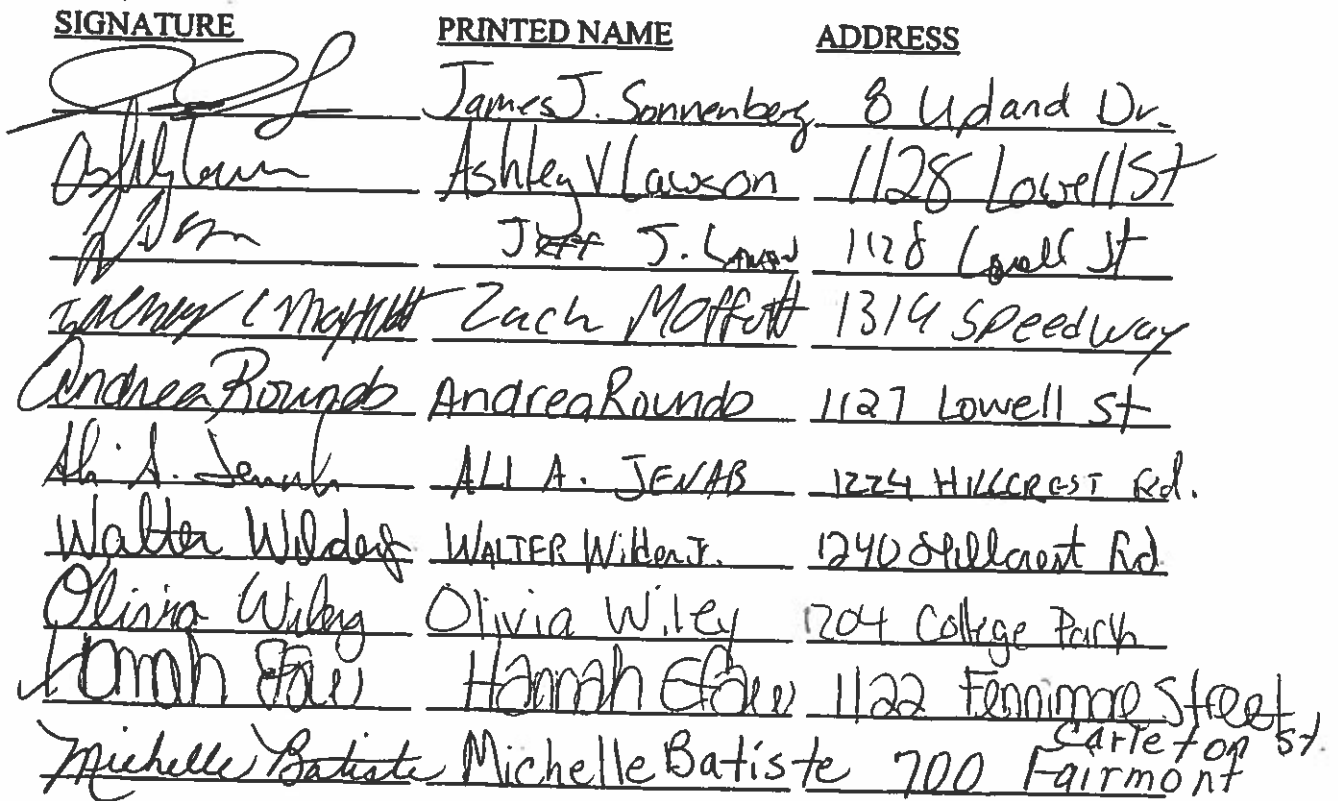 SIGNATURE PRINTED NAME ADDRESS
James J. Sonnenberg 8 Upland Dr.
Ashley V Lawson 1128 Lowell St
Jeff J. Lawson 1128 Lowell St
Zach Moffett 1314 Speedway
Andrea Rounds Andrea Rounds 1127 Lowell St
Ali A. Jenab ALI A. JENAB 1224 HILLCREST Rd.
Walter Wilder Jr WALTER Wilder Jr. 1240 Hillcrest Rd
Olivia Wiley Olivia Wiley 1204 College Park
Hannah Efaw Hannah Efaw 1122 Fennimore Street
Carleton St.
Michelle Batiste Michelle Batiste 700 Fairmont